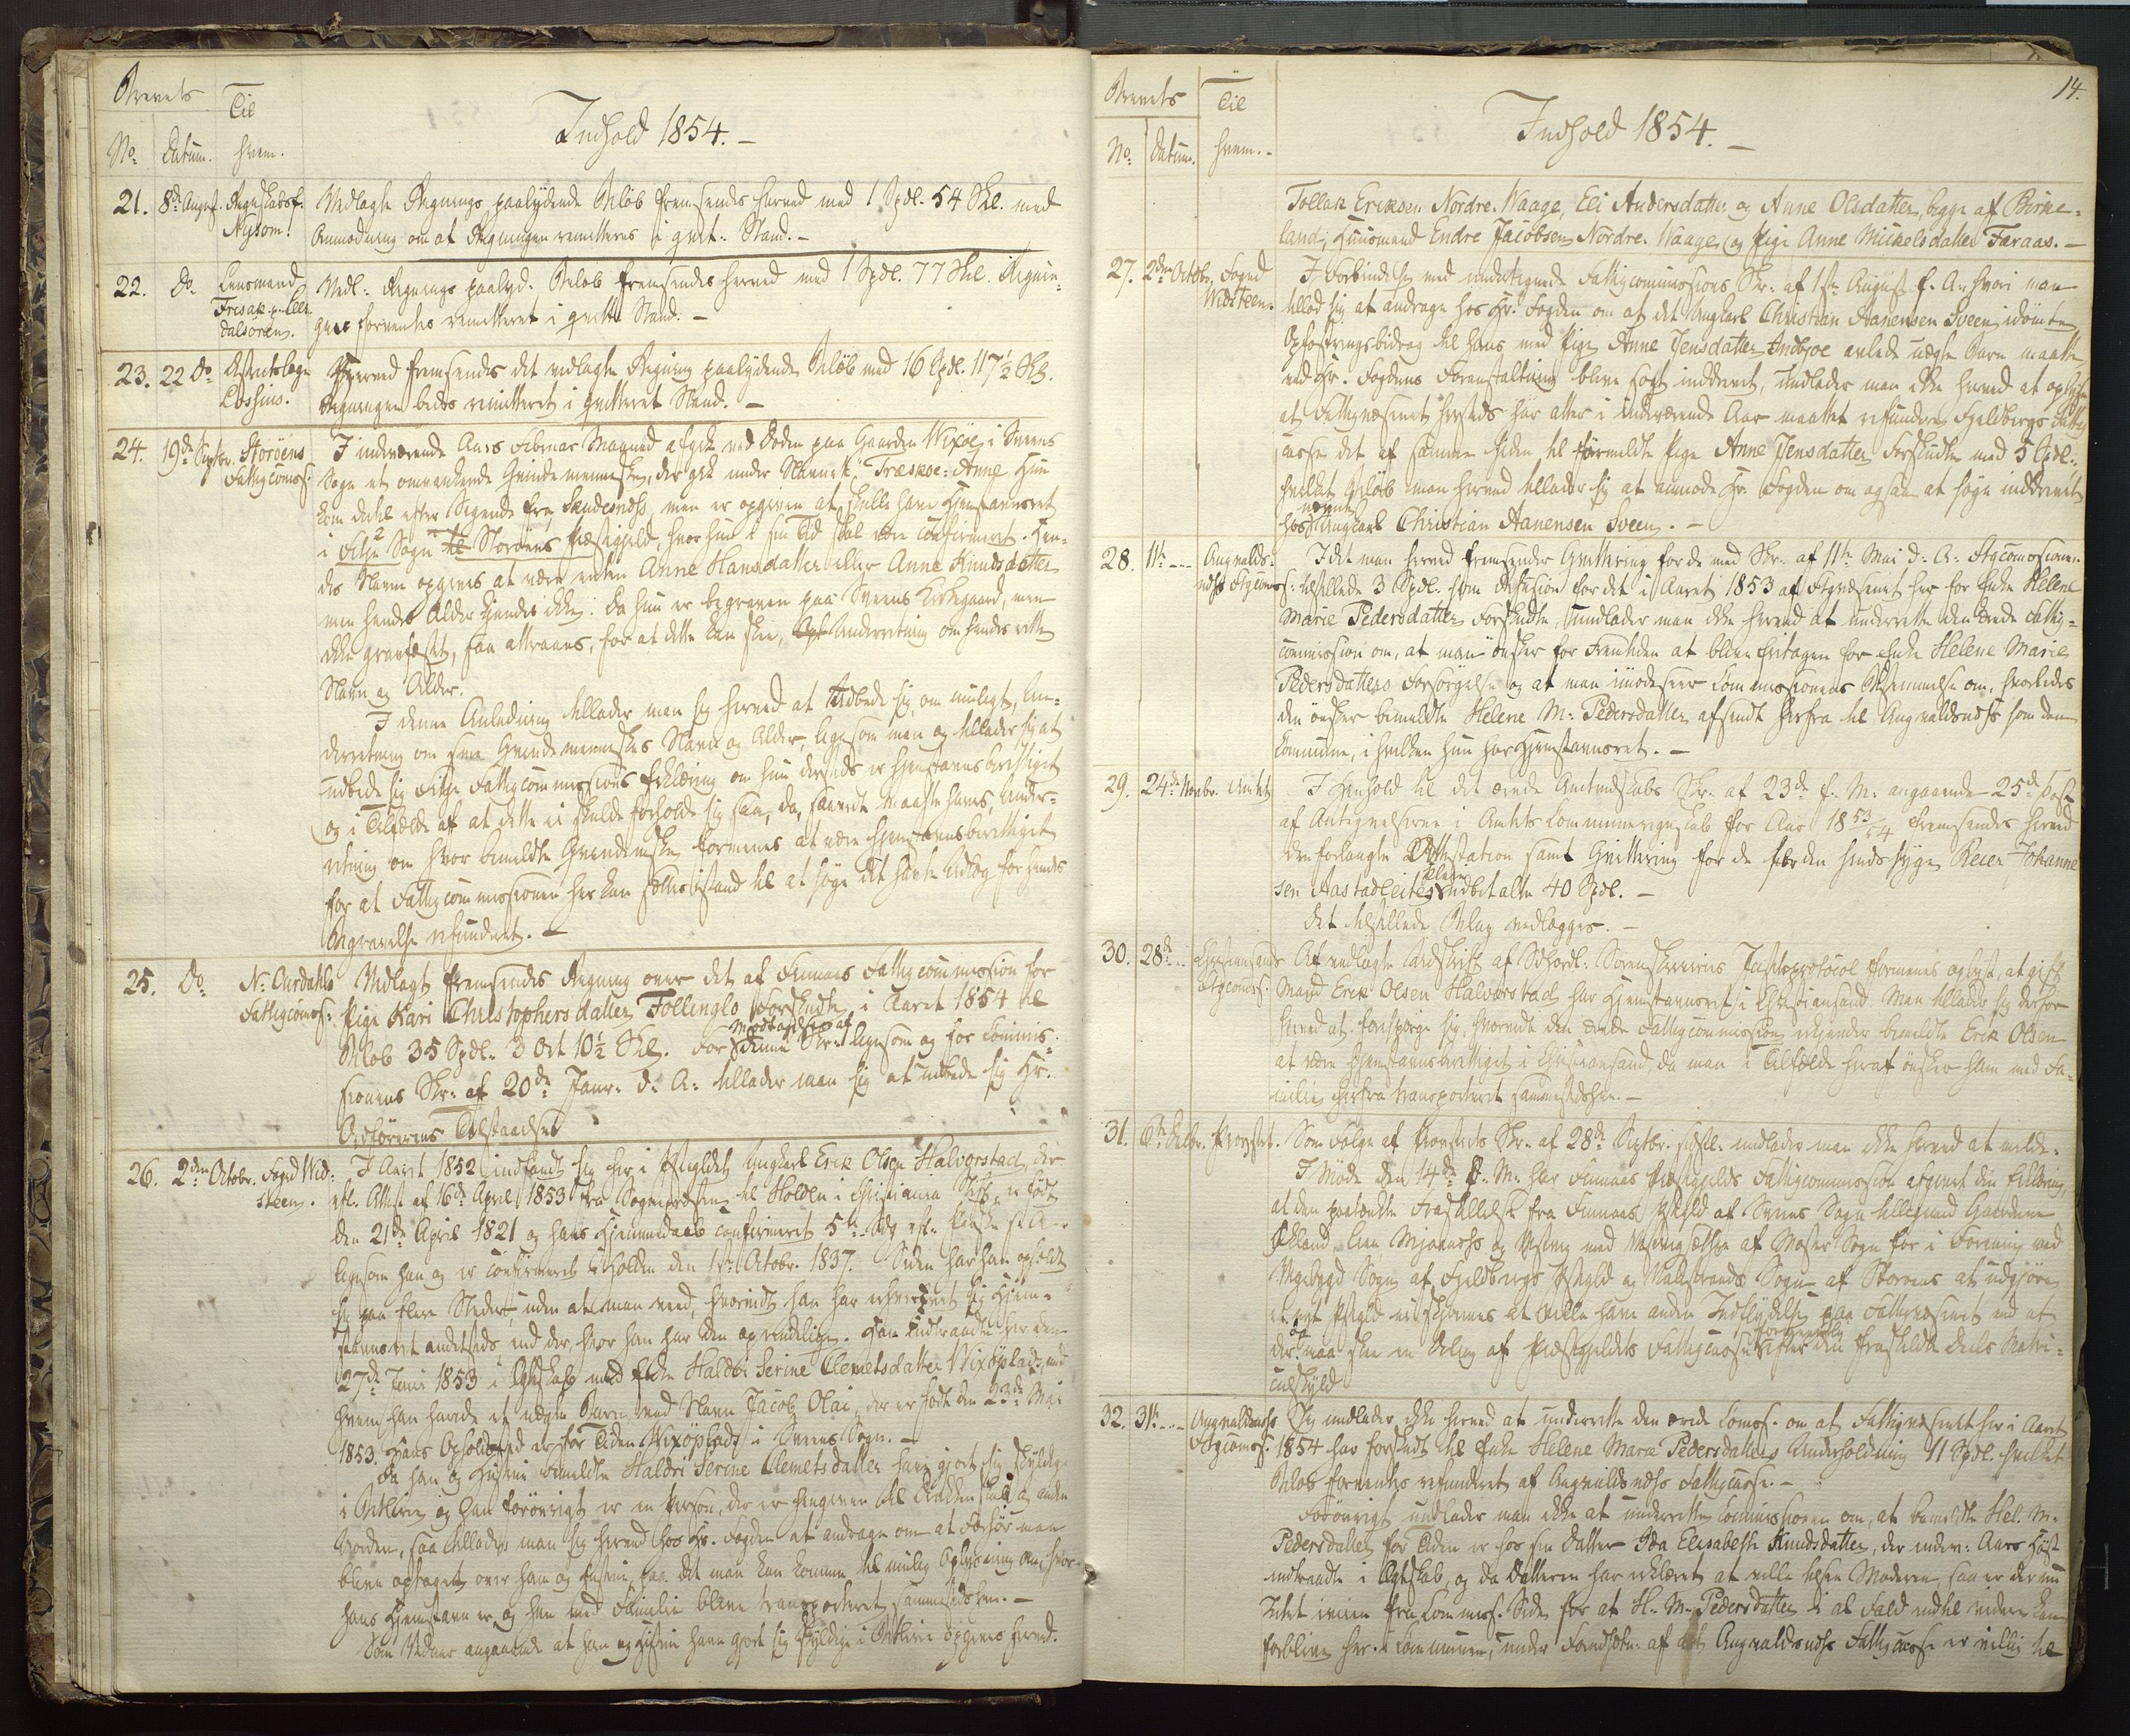 Brevets
Til
No.
Datum.
hvem.
Indhold 1854. –
21. 8de August. Regnskabsf. Nysom. Vedlagte Regnings paalydende Beløb fremsendes herved med 1 Spdl. 54 Skl. med
Anmodning om at Regningen remitteres i qvit. Stand. –
22. Do. Lensmand Vedl: Regnings paalyd: Beløb fremsendes herved med 1 Spdl. 77 Skl. Regnin-
gen forventes remitteret i qvitt: Stand. –
23. 22 Do Districtslæge Lossius. Hermed fremsendes det vedlagte Regning paalydende Beløb med 16 Spdl. 117½ Sk.
Regningen bedes remitteret i qvitteret Stand. –
24. 19de Septbr. Storøens Fattigcomss. I indeværende Aars Februar Maaned afgik ved Døden paa Gaarden Vixøe i Sveens
Sogn et omvankende Qvindemenneske, der gik under Navnet "Træskoe-Anne". Hun
kom dertil efter Sigende fra Skudesnæs, men er opgiven at skulle have Hjemstavnsret
i Fitje Sogn til Storøens Præstegjeld, hvor hun i sin Tid skal være confirmeret. Hen-
des Navn opgives at være enten Anne Hansdatter eller Anne Knudsdatter
men hendes Alder kjendes ikke. Da hun er begraven paa Sveens Kirkegaard, men
ikke gravfæstet, saa attraaes, for at dette kan skee, Underretning om hendes rette
Navn og Alder.
I denne Anledning tillader man sig herved at udbede sig, om muligt, Un-
derretning om Qvindemenneskes Navn og Alder, ligesom man og tillader sig at
udbede sig Fitje Fattigcommissions Erklæring om hun dersteds er hjemstavnsberettiget
og i Tilfælde af at dette ei skulde forholde sig saa, da, saavidt maatte haves, Under-
retning om hvor bemeldte Qvindemske formenes at være hjemstavnsberettiget
for at Fattigcommissionen her kan sættes istand til at søge det havte Udlæg for hendes
Begravelse refunderet. –
25. Do N: Aurdahls Fattigcomss: Vedlagt fremsendes Regning over det af Finnaas Fattigcommission for
Pige Kari Christophersdatter Follinglo forskudte i Aaret 1854 til
Beløb 35 Spdl. 3 Ort 10½ Skl. For Modtagelsen af denne Skr: ligesom og for Commis-
sionens Skr: af 20de Janr: d: A: tillader man sig at udbede sig Hr.
Ordførerens Tilstaaelse
26. 2den Octobr. Foged Wid- steen. I Aaret 1852 indfandt sig her i Prgjeldet Ungkarl Erik Olsen Halvorstad, der
efl. Attest af 16de April 1853 fra Sognepræsten til Holden i Christiania Stift, er født
den 21de April 1821 og hans Hjemmedaab confirmeret 5te
ligesom han og er confirmeret i Holden den 1ste Octobr. 1837. Siden har han opholdt
sig paa flere Steder, uden at man veed, hvorvidt han har erhvervet sig Hjem-
stavnsret andetsteds, end der, hvor han har den oprindelige. Han indtraadte her den
27de Juni 1853 i Ægteskab med Enke Haldri Serine Clemetsdatter Vixøplads, med
hvem han havde et uægte Barn ved Navn Jacob Olai, der er født den 23de Mai
1853. Hans Opholdssted er for Tiden Vixøplads i Sveens Sogn. –
Da han og Hustru bemeldte Haldri Serine Clemetsdatter have gjort sig skyldige
i Betleri og han forøvrigt er en Person, der er hengiven til Drukkenskab og anden
Uorden, saa tillader man sig herved hos Hr. Fogden at andrage om at Forhør maa
blive optaget over ham og Hustru, paa det man kan komme til mulig Oplysning om, hvor
hans Hjemstavn er, og han med Familie blive transporteret sammestedshen. –
Som Vidner angaaende at han og Hustru have gjort sig skyldige i Betleri opgives herved.
14.
Brevets
Til
No.
Datum.
hvem. –
Indhold 1854. –
Tollak Eriksen Nordre Waage, Eli Andersdatter og Anne Olsdatter, begge af Birke-
land, Huusmand Endre Jacobsen Nordre Waage og Pige Anne Mickelsdatter Faraas. –
27. 2den Octobr. Foged Widsteen. I Forbindelse med undertegnede Fattigcommissions Skr. af 1ste August f. A. hvori man
tillod sig at andrage hos Hr. Fogden om at det Ungkarl Christian Aanensen Sveen idømte
Opfostringsbidrag til hans med Pige Anne Jensdatter Indbjoe avlede uægte Barn maatte
ved Hr. Fogdens Foranstaltning blive søgt inddrevet, undlader man ikke herved at oplyse
at Fattigvæsenet hersteds har atter i indeværende Aar maattet refundere Fjeldbergs Fattig-
casse det af samme siden til formeldte Pige Anne Jensdatter forskudte med 5 Spdl.,
hvilket Beløb man herved tillader sig at anmode Hr. Fogden om ogsaa at søge inddrevet
hos nævnte Ungkarl Christian Aanensen Sveen. –
28. 11te – Augvalds- næs Ftgcomss: Idet man herved fremsender Qvittering for de med Skr. af 11te Mai d: A: Ftgcomssionen
tilstillede 3 Spdl. som Refusion for det i Aaret 1853 af Ftgvæsenet her for Enke Helene
Marie Pedersdatter forskudte, undlader man ikke herved at underrette den ærede Fattig-
commission om, at man ønsker for Fremtiden at blive fritagen for Enke Helene Marie
Pedersdatters Forsørgelse og at man imødeseer Commissionens Bestemmelse om, hvorledes
den ønsker bemeldte Helene M: Pedersdatter afsendt herfra til Augvaldsnæs som den
Commune, i hvilken hun har Hjemstavnsret. –
29. 24de Novbr. Amtet I Henhold til det ærede Amtmdskabs Skr. af 23de f. M. angaaende 25de Post
af Antegnelserne i Amts Communeregnskab for Aar 1853/54 fremsendes herved
den forlangte Attestation samt Qvittering for de for den sindssyge Reier Johanne-
sen Aastadleites udbetalte 40 Spdl. –
Det tilstillede Bilag vedlægges. –
30. 28de – Christiansands Ftgcomss. Af vedlagte Udskrift af Sdhordl. Sorenskriveries Justitsprotocol formenes oplyst, at gift
Mand Erik Olsen Halvorstad har Hjemstavnsret i Christiansand. Man tillader sig derfor
herved at forespørge sig, hvorvidt den ærede Fattigcommission erkjender bemeldte Erik Olsen
at være hjemstavnsberettiget i Christiansand, da man i Tilfælde heraf ønsker ham med Fa-
milie herfra transporteret sammestedshen. –
31. Decbr. Provstet. Som Følge af Provstiets Skr. af 28de Septbr. sidstl. undlader man ikke herved at melde.
I Møde den 14de f. M. har Finnaas Præstegjelds Fattigcommission afgivet den Erklæring,
at den paatænkte Fraskillelse fra Finnaas Prgjld af Sveens Sogn tilligemed Gaardene
Økland, Mjaanæs og af Moster Sogn for i Forening med
Sogn af Fjeldbergs Prgjld og Valestrands Sogn af Storøens at udgjøre
et eget Prgjld ei skjønnes at ville have anden Indflydelse paa Fattigvæsenet end at
der da maa skee en Deling af Præstegjeldets Fattigcasse efter den fraskildte Deels Matri-
culskyld
32. 31te – Augvaldsnæs Ftgcomss: Jeg undlader ikke herved at underrette den ærede Comss. om at Fattigvæsenet her i Aaret
1854 har forskudt til Enke Helene Marie Pedersdatters Underholdning 11 Spdl. hvilket
Beløb forventes refunderet af Augvaldsnæs Fattigcasse. –
Forøvrigt undlader man ikke at underrette Commissionen om, at bemeldte Hel. M.
Pedersdatter for Tiden er hos sin Datter Ida Elisabeth Knudsdatter, der indev: Aars Høst
indtraadte i Ægteskab, og da Datteren har erklæret at ville hjelpe Moderen, saa er der nu
Intet imod fra Commiss. Side for at H. M. Pedersdatter i al Fald indtil videre kan
forblive her i Communen, under Forudsætn. af at Augvaldsnæs Fattigcasse er villig til